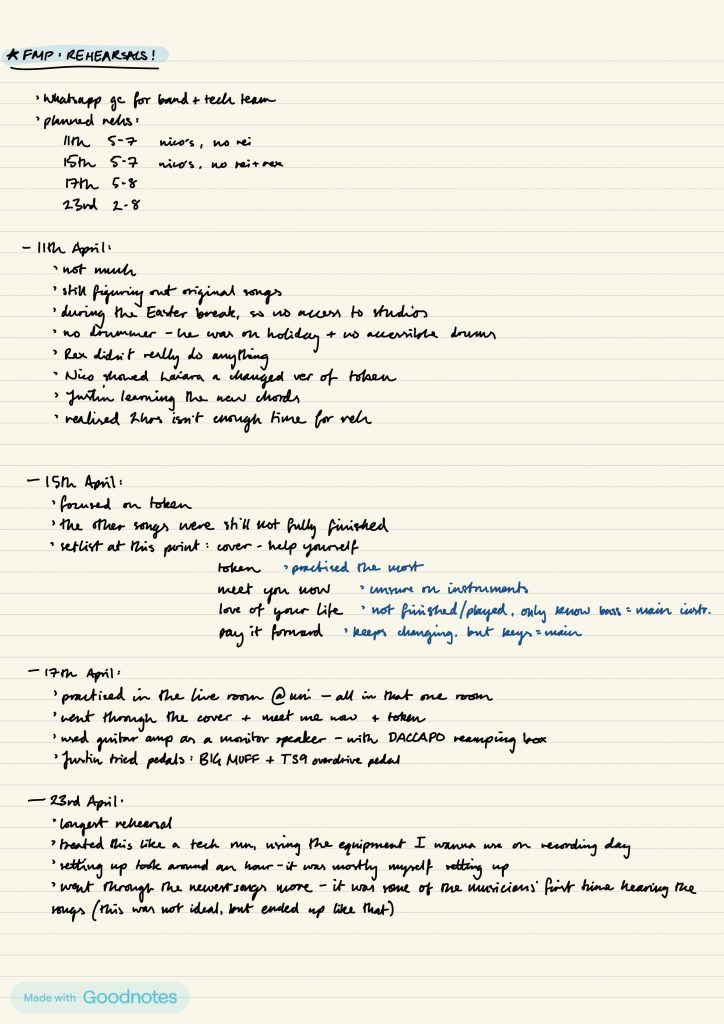 ★ FMP : REHEARSALS!
• Whatsapp gc for band + tech team
• planned rehs:
11th 5-7 nico's, no rei
15th 5-7 nico's, no rei + rex
17th 5-8
23rd 2-8
- 11th April:
• not much
• still figuring out original songs
• during the Easter break, so no access to studios
• no drummer - he was on holiday + no accessible drums
• Rex didn't really do anything
• Nico showed Laiara a changed ver of token
• Justin learning the new chords
• realised 2hrs isn't enough time for reh
- 15th April:
• focused on token
• the other songs were still not fully finished
• setlist at this point : cover - help yourself
token • practised the most
meet you now • unsure on instruments
love of your life • not finished/played, only know bass = main instr.
pay it forward • keeps changing, but keys = main
- 17th April:
• practised in the live room @ uni - all in that one room
• went through the cover + meet me now + token
• used guitar amp as a monitor speaker - with DACCAPO reamping box
• Justin tried pedals : BIG MUFF + TS9 overdrive pedal
- 23rd April.
• longest rehearsal
• treated this like a tech run, using the equipment I wanna use on recording day
• setting up took around an hour - it was mostly myself setting up
• went through the newest songs more - it was some of the musicians' first time hearing the
songs (this was not ideal, but ended up like that)
Made with Goodnotes